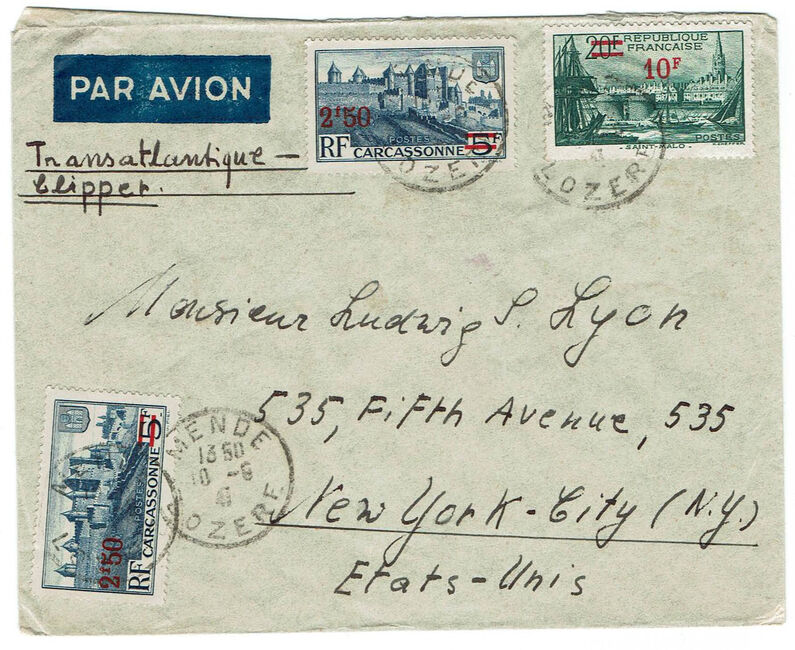 PAR AVION
Transatlantique –
Clipper.
2F50
POSTES
RF CARCASSONNE 5F
MENDE
LOZERE
20F RÉPUBLIQUE
FRANÇAISE
10F
POSTES
- SAINT-MALO -
LOZERE
Monsieur Ludwig S. Lyon
535, Fifth Avenue, 535
New York-City (N.Y.)
Etats-Unis
5F
2F50
POSTES
RF CARCASSONNE
MENDE
13 50
10 -6
41
LOZERE